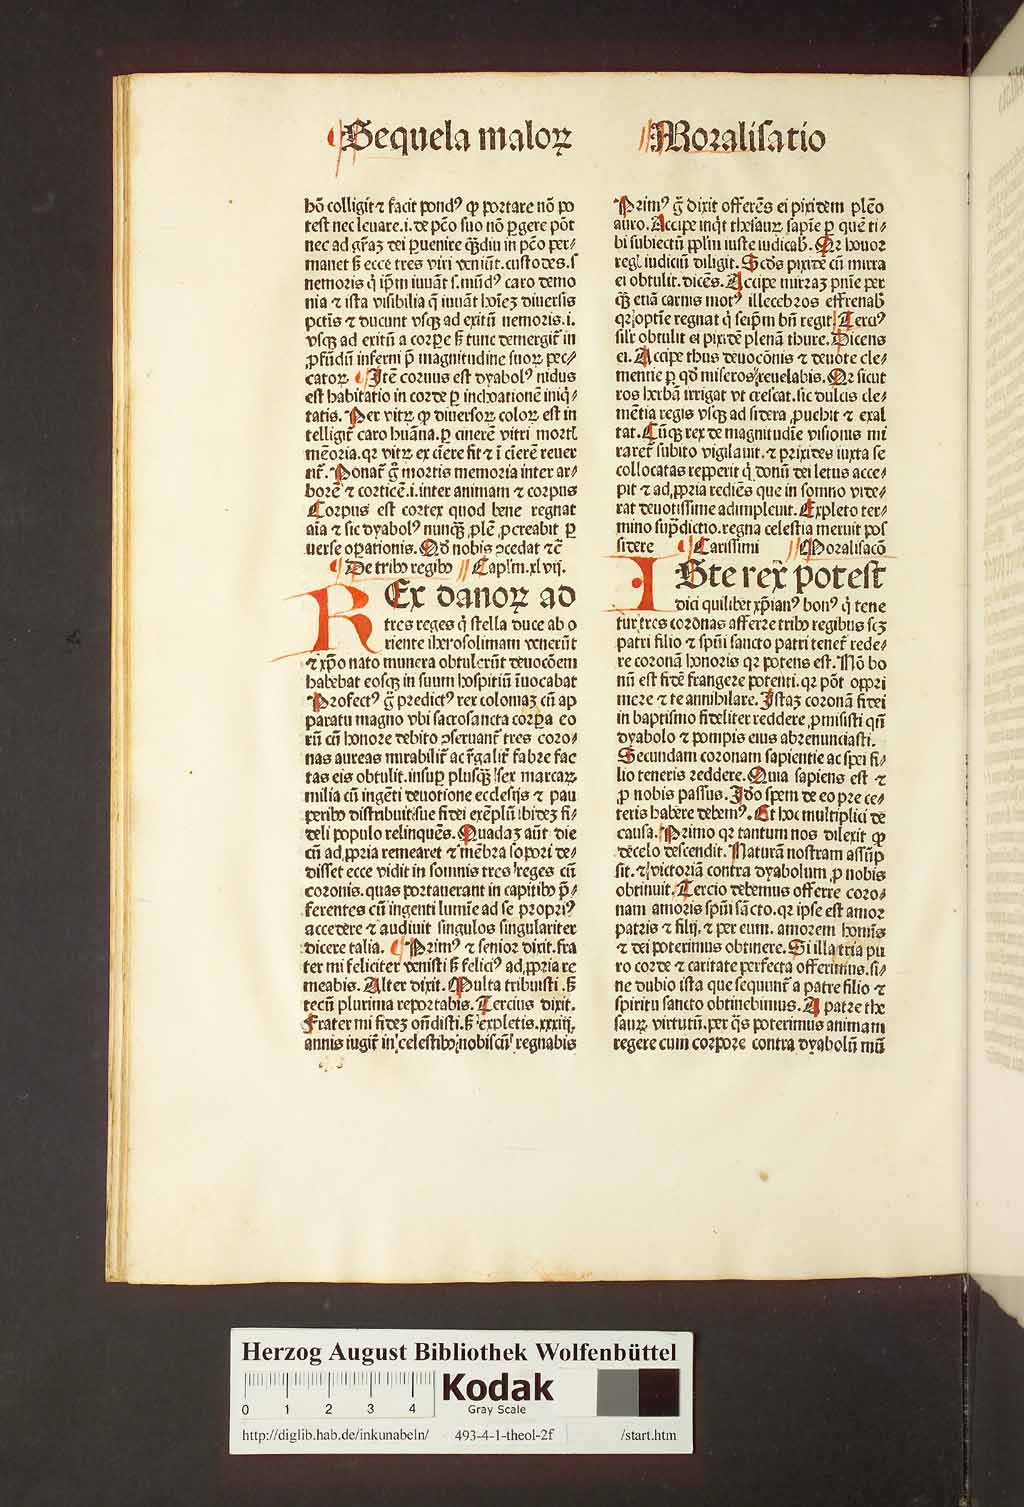 Sequela maloꝝ
Moralisatio
hō colligit ⁊ facit pondꝰ qͥ portare nō po
test nec leuare .i. de pctō suo nō ꝑgere pōt
nec ad grāꝫ dei ꝑuenire qͣꝫdiu in pctō per⸗
manet sꝫ ecce tres viri veniūt. custodes .s
nemoris qͥ ip̄m iuuāt s. mūdꝰ caro demo
nia ⁊ ista visibilia q̄ iuuāt hoīeꝫ diuersis
pctīs ⁊ ducunt vsqꝫ ad exitū nemoris .i.
vsqꝫ ad exitū a corꝑe sꝫ tunc demergit̄ in
ꝓfūdū inferni ꝓ magnitudine suoꝝ pec⸗
catoꝝ Itē coruus est dyabolꝰ nidus
est habitatio in corde ꝑ inchoationē iniqͥ⸗
tatis. Per vitꝝ qͥ diuersoꝝ coloꝝ est in
telligit̄ caro huāna. ꝑ cinerē vitri mortl̄
mēoria. qꝛ vitꝝ ex cīere fit ⁊ ī cīerē reuer
tit̄. Ponat̄ g̊ mortis memoria inter ar⸗
borē ⁊ corticē .i. inter animam ⁊ corpus
Corpus est cortex quod bene regnat
aīa ⁊ sic dyabolꝰ nunqͣꝫ ꝓlē ꝓcreabit ꝑ
uerse oꝑationis. Qd̄ nobis ↄcedat ⁊c̄
De tribꝰ regibꝰ Capl'm .xlvij.
REx danoꝝ ad
tres reges qͥ stella duce ab o
riente iherosolimam venerūt
⁊ xp̄o nato munera obtulerūt deuocōem
habebat eosqꝫ in suum hospitiū īuocabat
Profectꝰ g̊ predictꝰ rex coloniaꝫ cū ap
paratu magno vbi sacrosancta corꝑa eo
rū cū honore debito ↄseruant̄ tres coro⸗
nas aureas mirabilit̄ ac r̄galit̄ fabre fac
tas eis obtulit. insuꝑ plusqͣꝫ sex marcaꝝ
milia cū ingēti deuotione ecclesijs ⁊ pau
peribꝰ distribuit. sue fidei exēplū ibideꝫ fi⸗
deli populo relinquēs. Quadaꝫ aūt die
cū ad ꝓpria remearet ⁊ mēbra sopori de⸗
disset ecce vidit in somnis tres reges cū
coronis. quas portauerant in capitibꝰ p̄⸗
ferentes cū ingenti lumīe ad se propriꝰ
accedere ⁊ audiuit singulos singulariter
dicere talia. Primꝰ ⁊ senior dixit. fra
ter mi feliciter venisti sꝫ feliciꝰ ad ꝓpria re
meabis. Alter dixit. Multa tribuisti. sꝫ
tecū plurima reportabis. Tercius dixit.
Frater mi fideꝫ oñdisti. sꝫ expletis .xxxiij.
annis iugit̄ in celestibꝰ nobiscū regnabis
Primꝰ g̊ dixit offerēs ei pixidem plēo
auro. Accipe inqͥt thesauꝝ sapīe ꝑ quē ti⸗
bi subiectū ppl'm iuste iudicabꝰ. Qꝛ honor
regl iudiciū diligit. Scd̄s pixidē cū mirra
ei obtulit. dicēs. Accipe mirraꝫ pnīe per
qͣꝫ etiā carnis motꝰ illecebros effrenabꝰ
qꝛ optīe regnat qͥ seip̄m bn̄ regit. Tercꝰ
silr̄ obtulit ei pixidē plenā thure. Dicens
ei. Accipe thus deuocōnis ⁊ deuote cle⸗
mentie ꝑ qd̄ miseros reuelabis. Qꝛ sicut
ros herbā irrigat vt crescat. sic dulcis cle⸗
mētia regis vsqꝫ ad sidera ꝓuehit ⁊ exal
tat. Cūqꝫ rex de magnitudīe visionis mi
raret̄ subito vigilauit. ⁊ prixides iuxta se
collocatas repperit qͥ donū dei letus acce⸗
pit ⁊ ad ꝓpria rediēs que in somno vide⸗
rat deuotissime adimpleuit. Expleto ter⸗
mino supͣdictio. regna celestia meruit pos
sidere Carissimi Moralisacō
ISte rex potest
dici quilibet xp̄ianꝰ bonꝰ qͥ tene
tur tres coronas afferre tribꝰ regibus scꝫ
patri filio ⁊ spūi sancto patri tenet̄ rede⸗
re coronā honoris qꝛ potens est. Nō bo
nū est fidē frangere potenti. qꝛ pōt oppri
mere ⁊ te annihilare. Istaꝫ coronā fidei
in baptismo fideliter reddere ꝓmisisti qn̄
dyabolo ⁊ pompis eius abrenunciasti.
Secundam coronam sapientie ac spei fi⸗
lio teneris reddere. Quia sapiens est ⁊
ꝓ nobis passus. Id̊o spem de eo pre ce⸗
teris habere debemꝰ. Et hoc multiplici de
causa. Primo qꝛ tantum nos dilexit qͥ
de celo descendit. Naturā nostram assūp
sit. ⁊ victoriā contra dyabolum ꝓ nobis
obtinuit. Tercio debemus offerre coro⸗
nam amoris spūi sācto. qꝛ ipse est amor
patris ⁊ filij. ⁊ per eum. amorem homīs
⁊ dei poterimus obtinere. Si illa tria pu
ro corde ⁊ caritate perfecta offerimus. si⸗
ne dubio ista que sequunt̄ a patre filio ⁊
spiritu sancto obtinebimus. A patre the
sauꝝ virtutū. per qͣs poterimus animam
regere cum corpore contra dyabolū mū
Herzog August Bibliothek Wolfenbüttel
0 1 2 3 4
Kodak
Gray Scale
http://diglib.hab.de/inkunabeln/ 493-4-1-theol-2f /start.htm